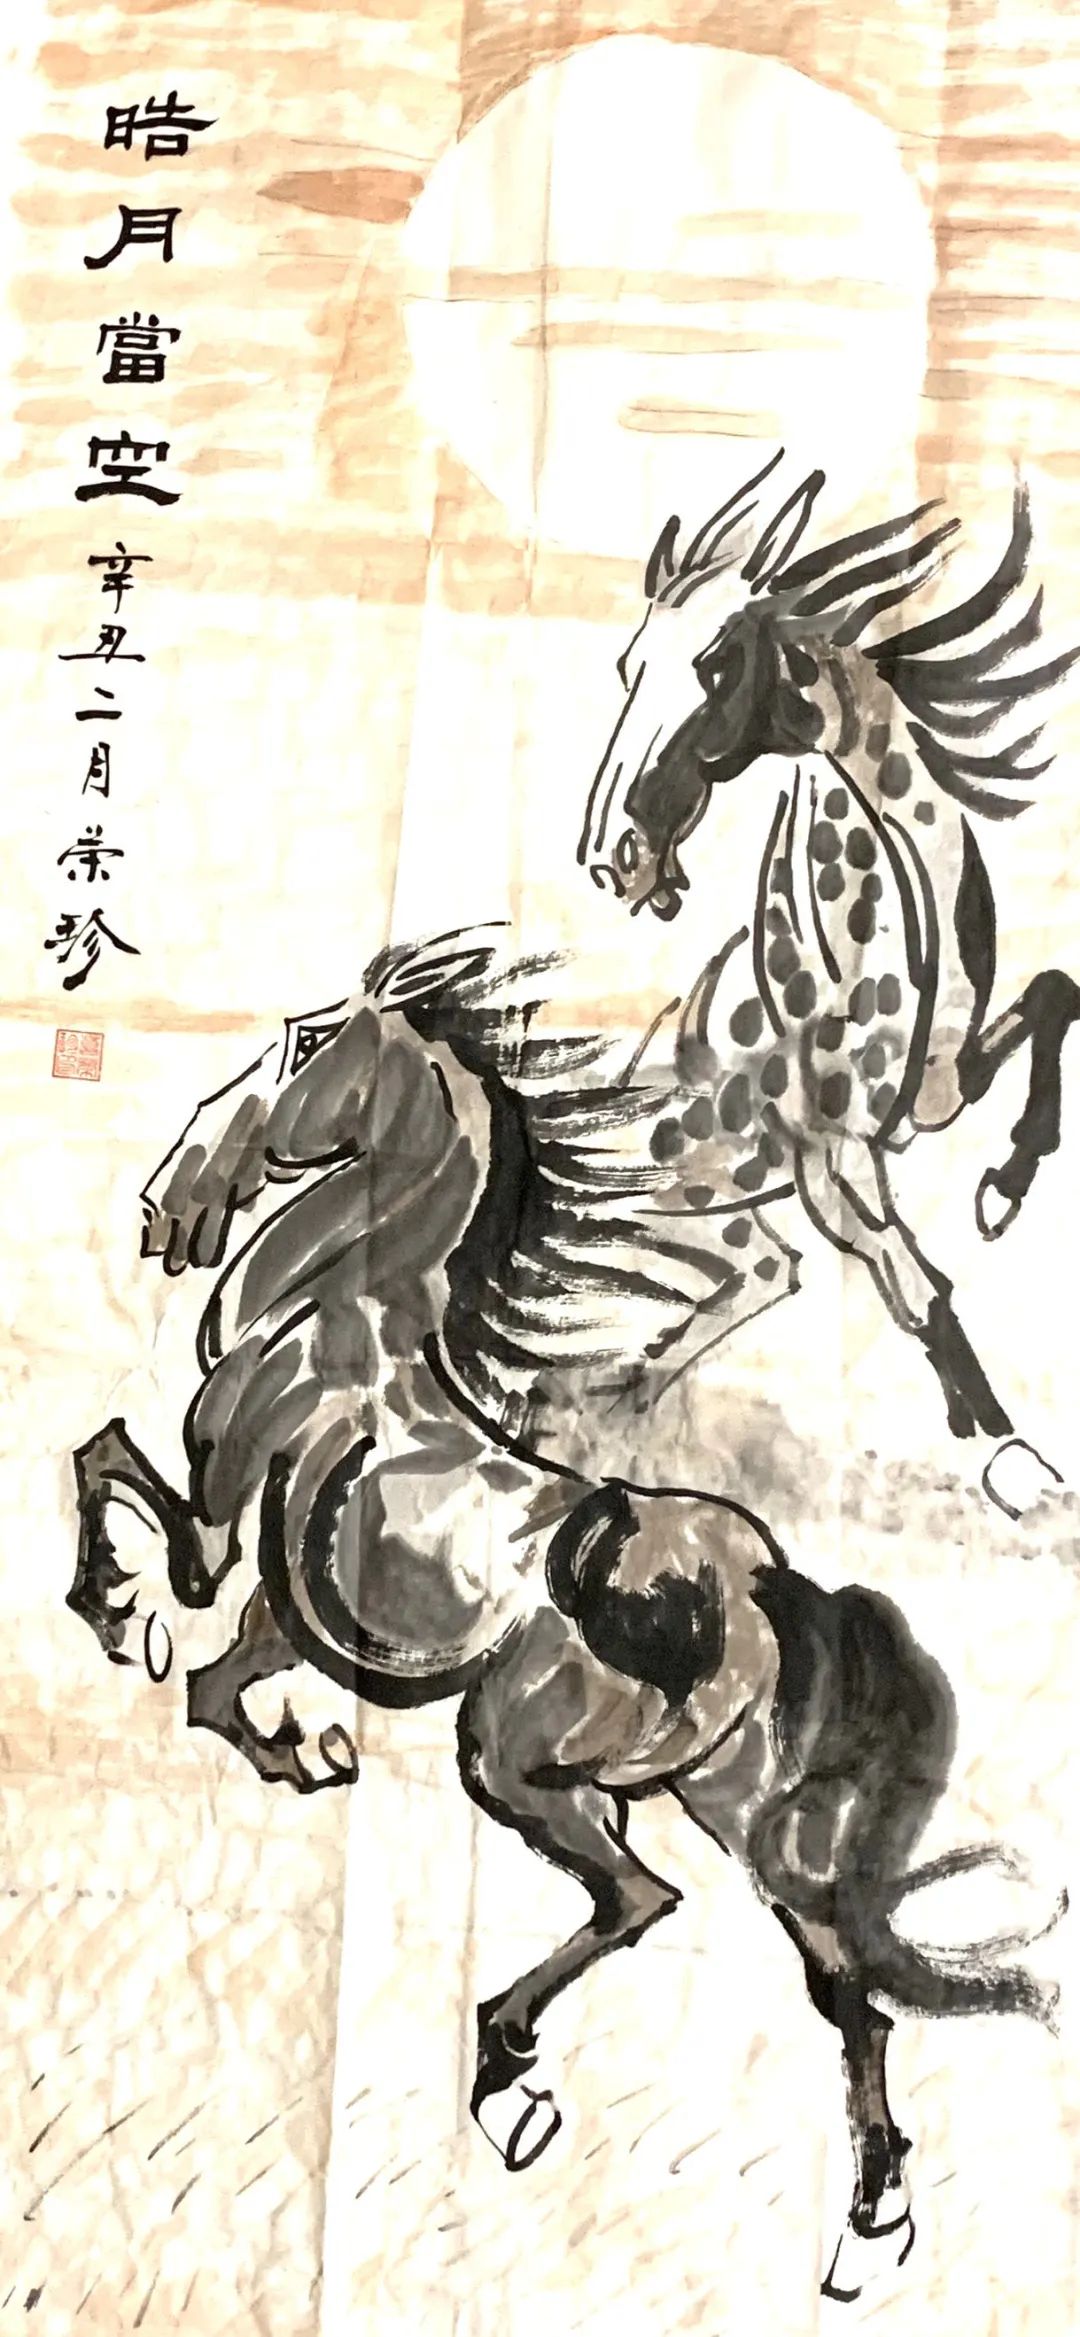 晧月當空辛丑二月荣珍